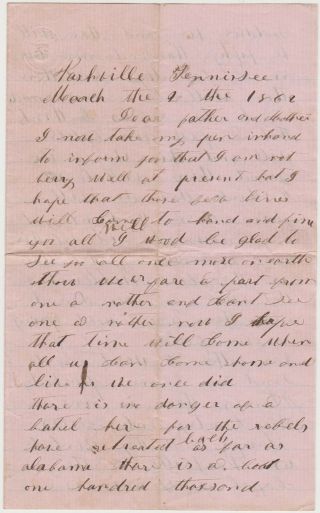 Nashville Tennissee
March the 9 the 1862
Dear father and Mother
I now take my pen inhand
to inform you that I am not
very well at present but I
hope that those few lines
will Come to hand and fine
you all well I wood be glad to
see you all once more on earth
thow we ar fare a part from
one a nother and Cant see
one a nother now I hope
that time will Come when
all us Can Come home and
live as we once did
there is no danger of a
batel her for the rebels
have retreated back as far as
alabama thare is a bout
one hundred thousand